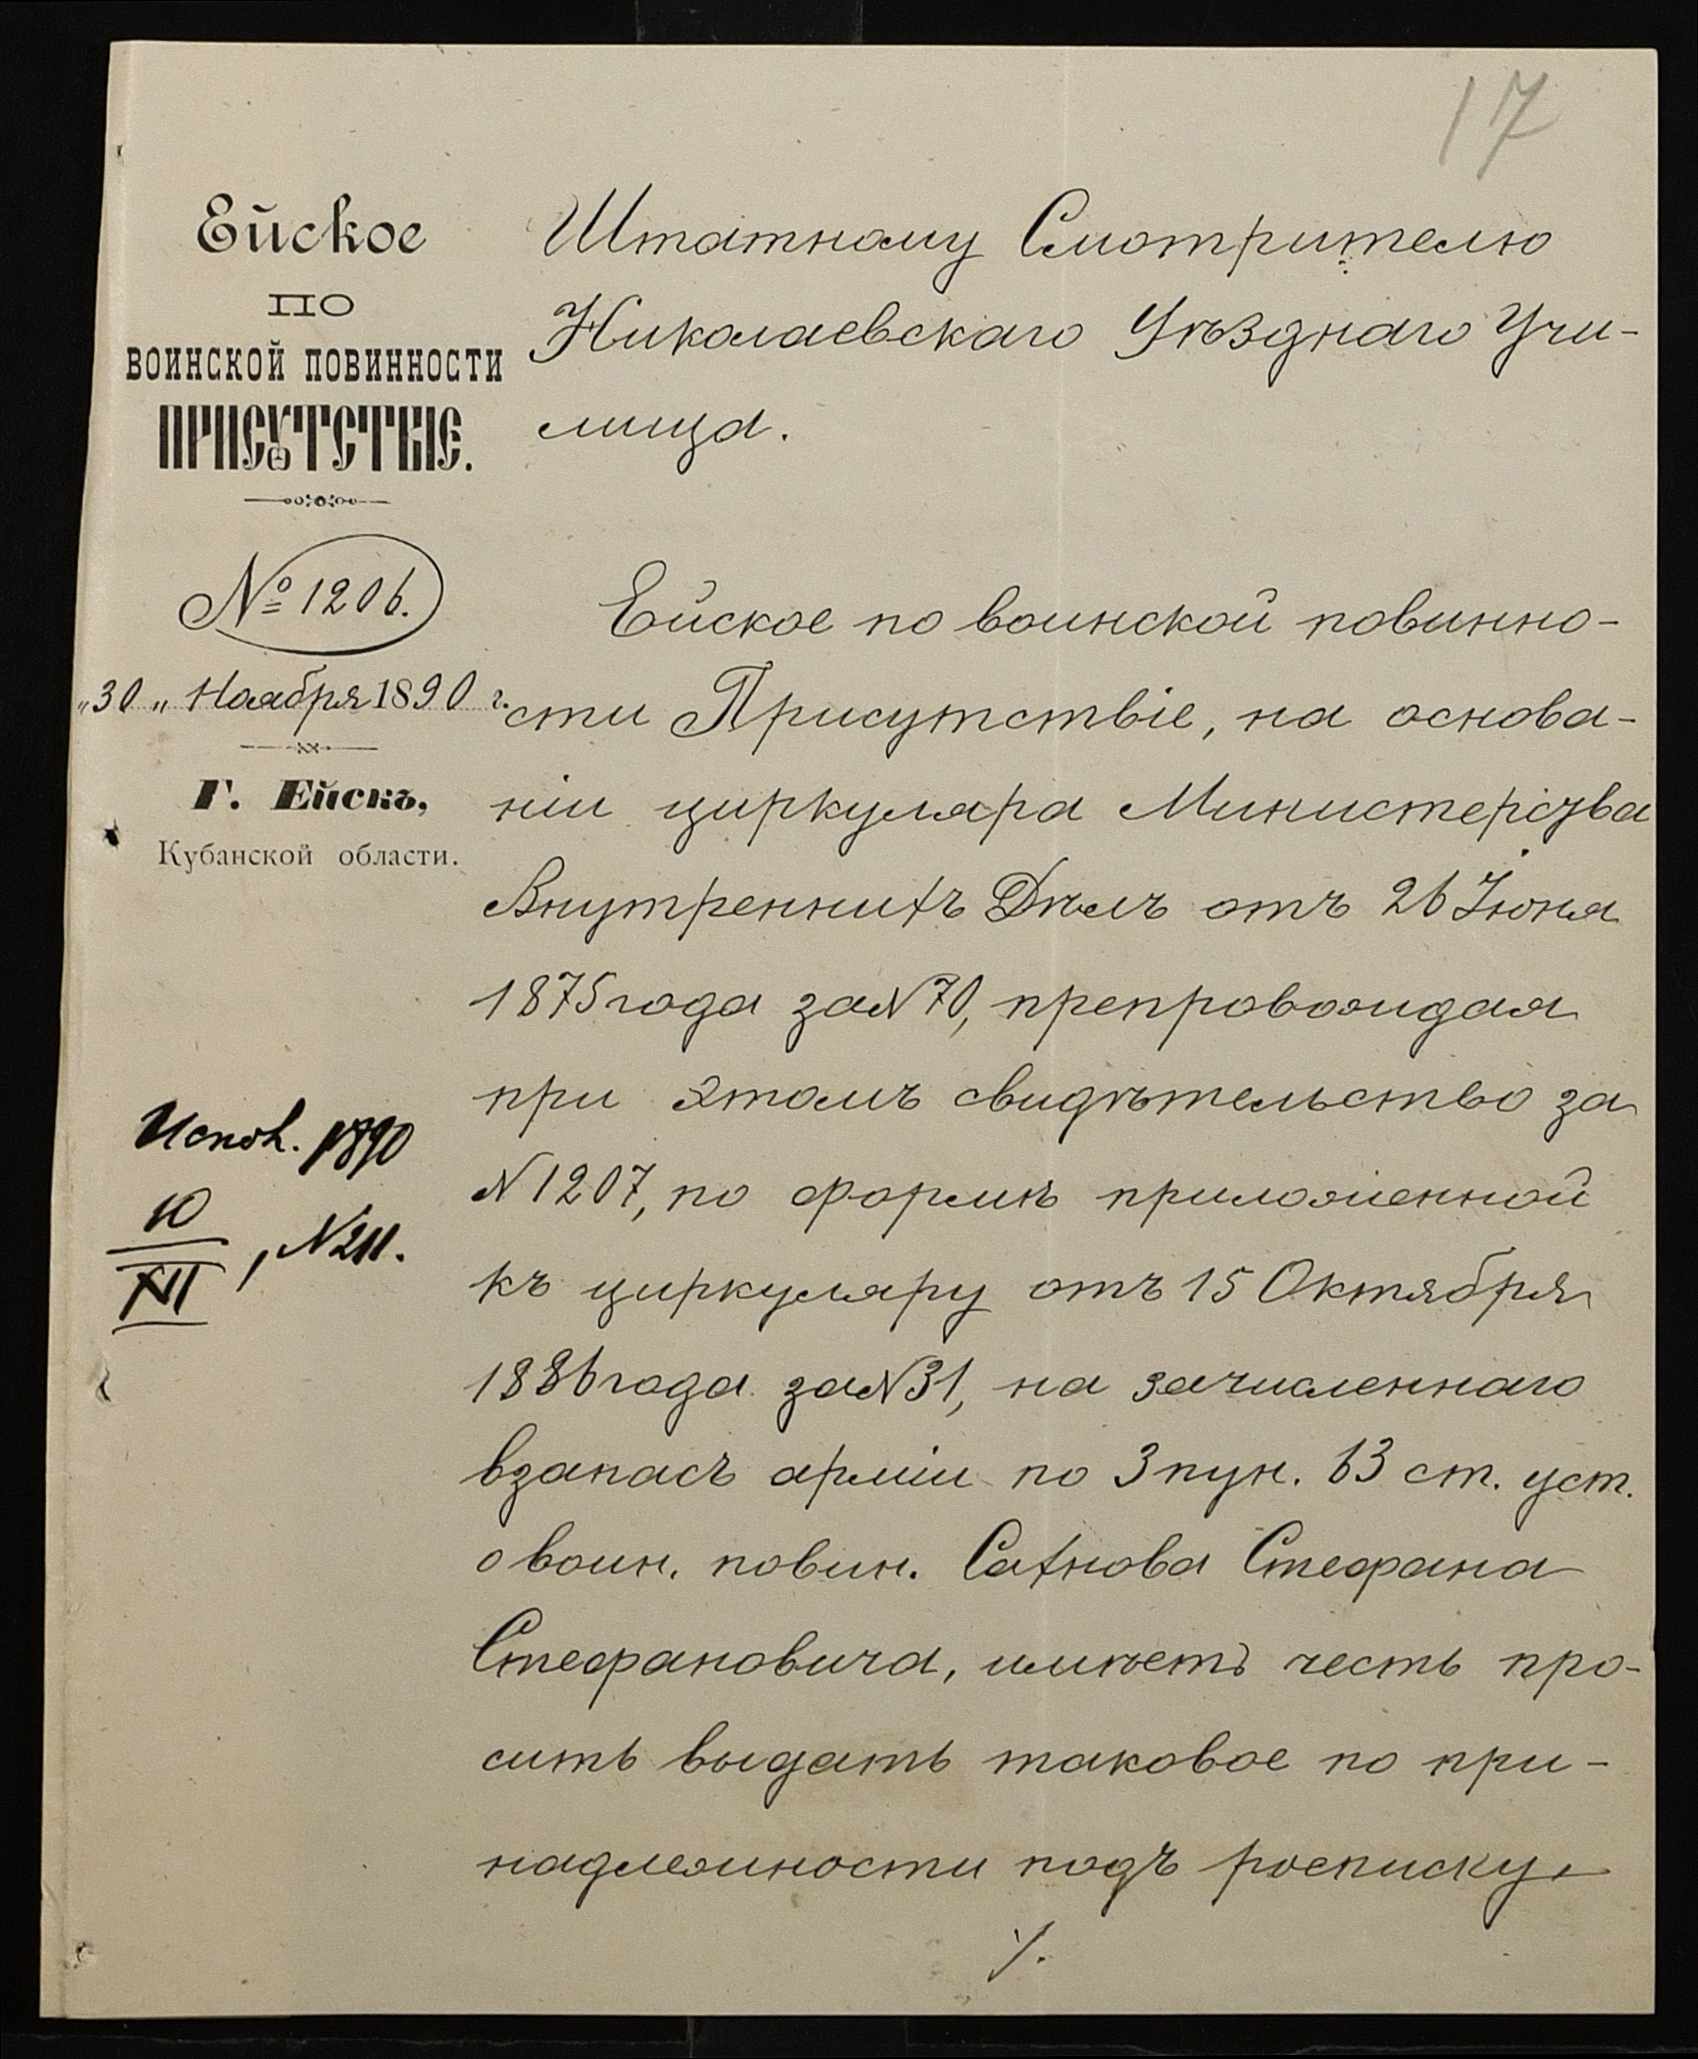 17
Ейское
ПО
ВОИНСКОЙ ПОВИННОСТИ
ПРИСУТСТВІЕ.
№ 1206.
„30„ Ноября 1890 г.
Г. Ейскъ,
Кубанской области.
Исполн. 1890
10
XII
, N 211.
Штатному Смотрителю
Николаевскаго Уѣзднаго Учи-
лища.
Ейское по воинской повинно-
сти Присутствіе, на основа-
ніи циркуляра Министерства
Внутреннихъ Дѣлъ отъ 26 Іюня
1875 года за N 70, препровождая
при этомъ свидѣтельство за
N 1207, по формѣ приложенной
къ циркуляру отъ 15 Октября
1886 года за N 31, на зачисленнаго
взапасъ арміи по 3 пун. 63 ст. уст.
о воин. повин. Сахнова Стефана
Стефановича, имѣетъ честь про-
сить выдать таковое по при-
надлежности подъ росписку,